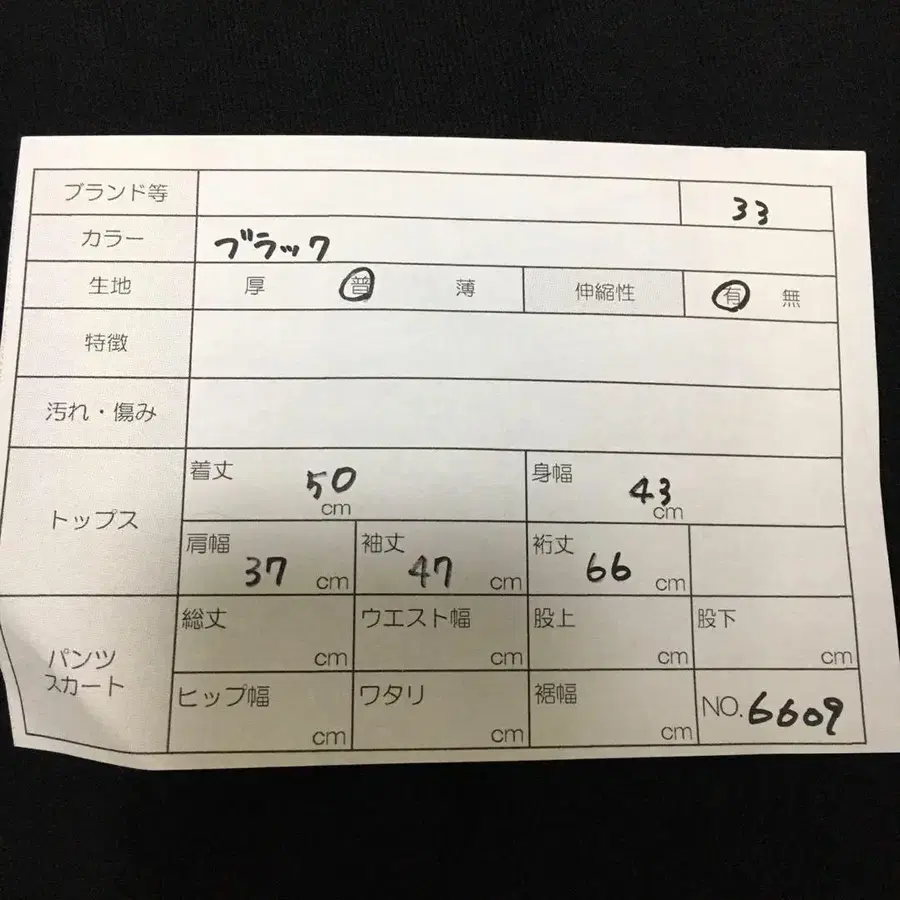 ブランド等 33
カラー ブラック
生地 厚 普 薄 伸縮性 有 無
特徴
汚れ・傷み
トップス
着丈 50 cm 身幅 43 cm
肩幅 37 cm 袖丈 47 cm 裄丈 66 cm
パンツ
スカート
総丈 cm ウエスト幅 cm 股上 cm 股下 cm
ヒップ幅 cm ワタリ cm 裾幅 cm NO.6609